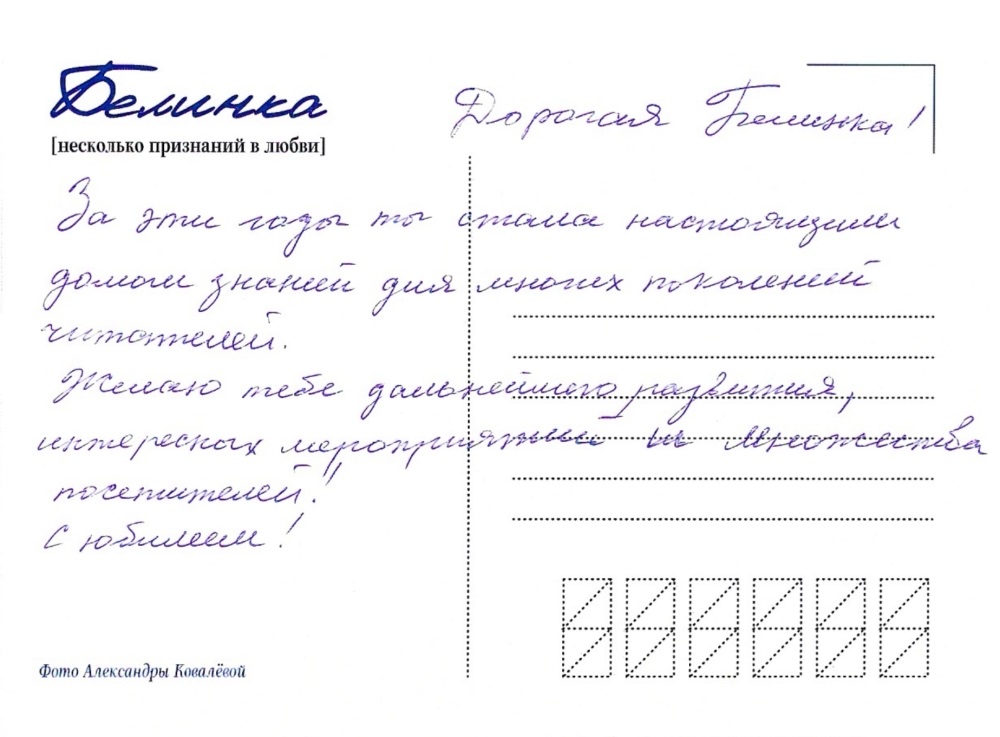 Белинка
[несколько признаний в любви]
Дорогая Белинка!
За эти годы ты стала настоящим
домом знаний для многих поколений
читателей.
Желаю тебе дальнейшего развития,
интересных мероприятий и множества
посетителей!
С юбилеем!
Фото Александры Ковалёвой